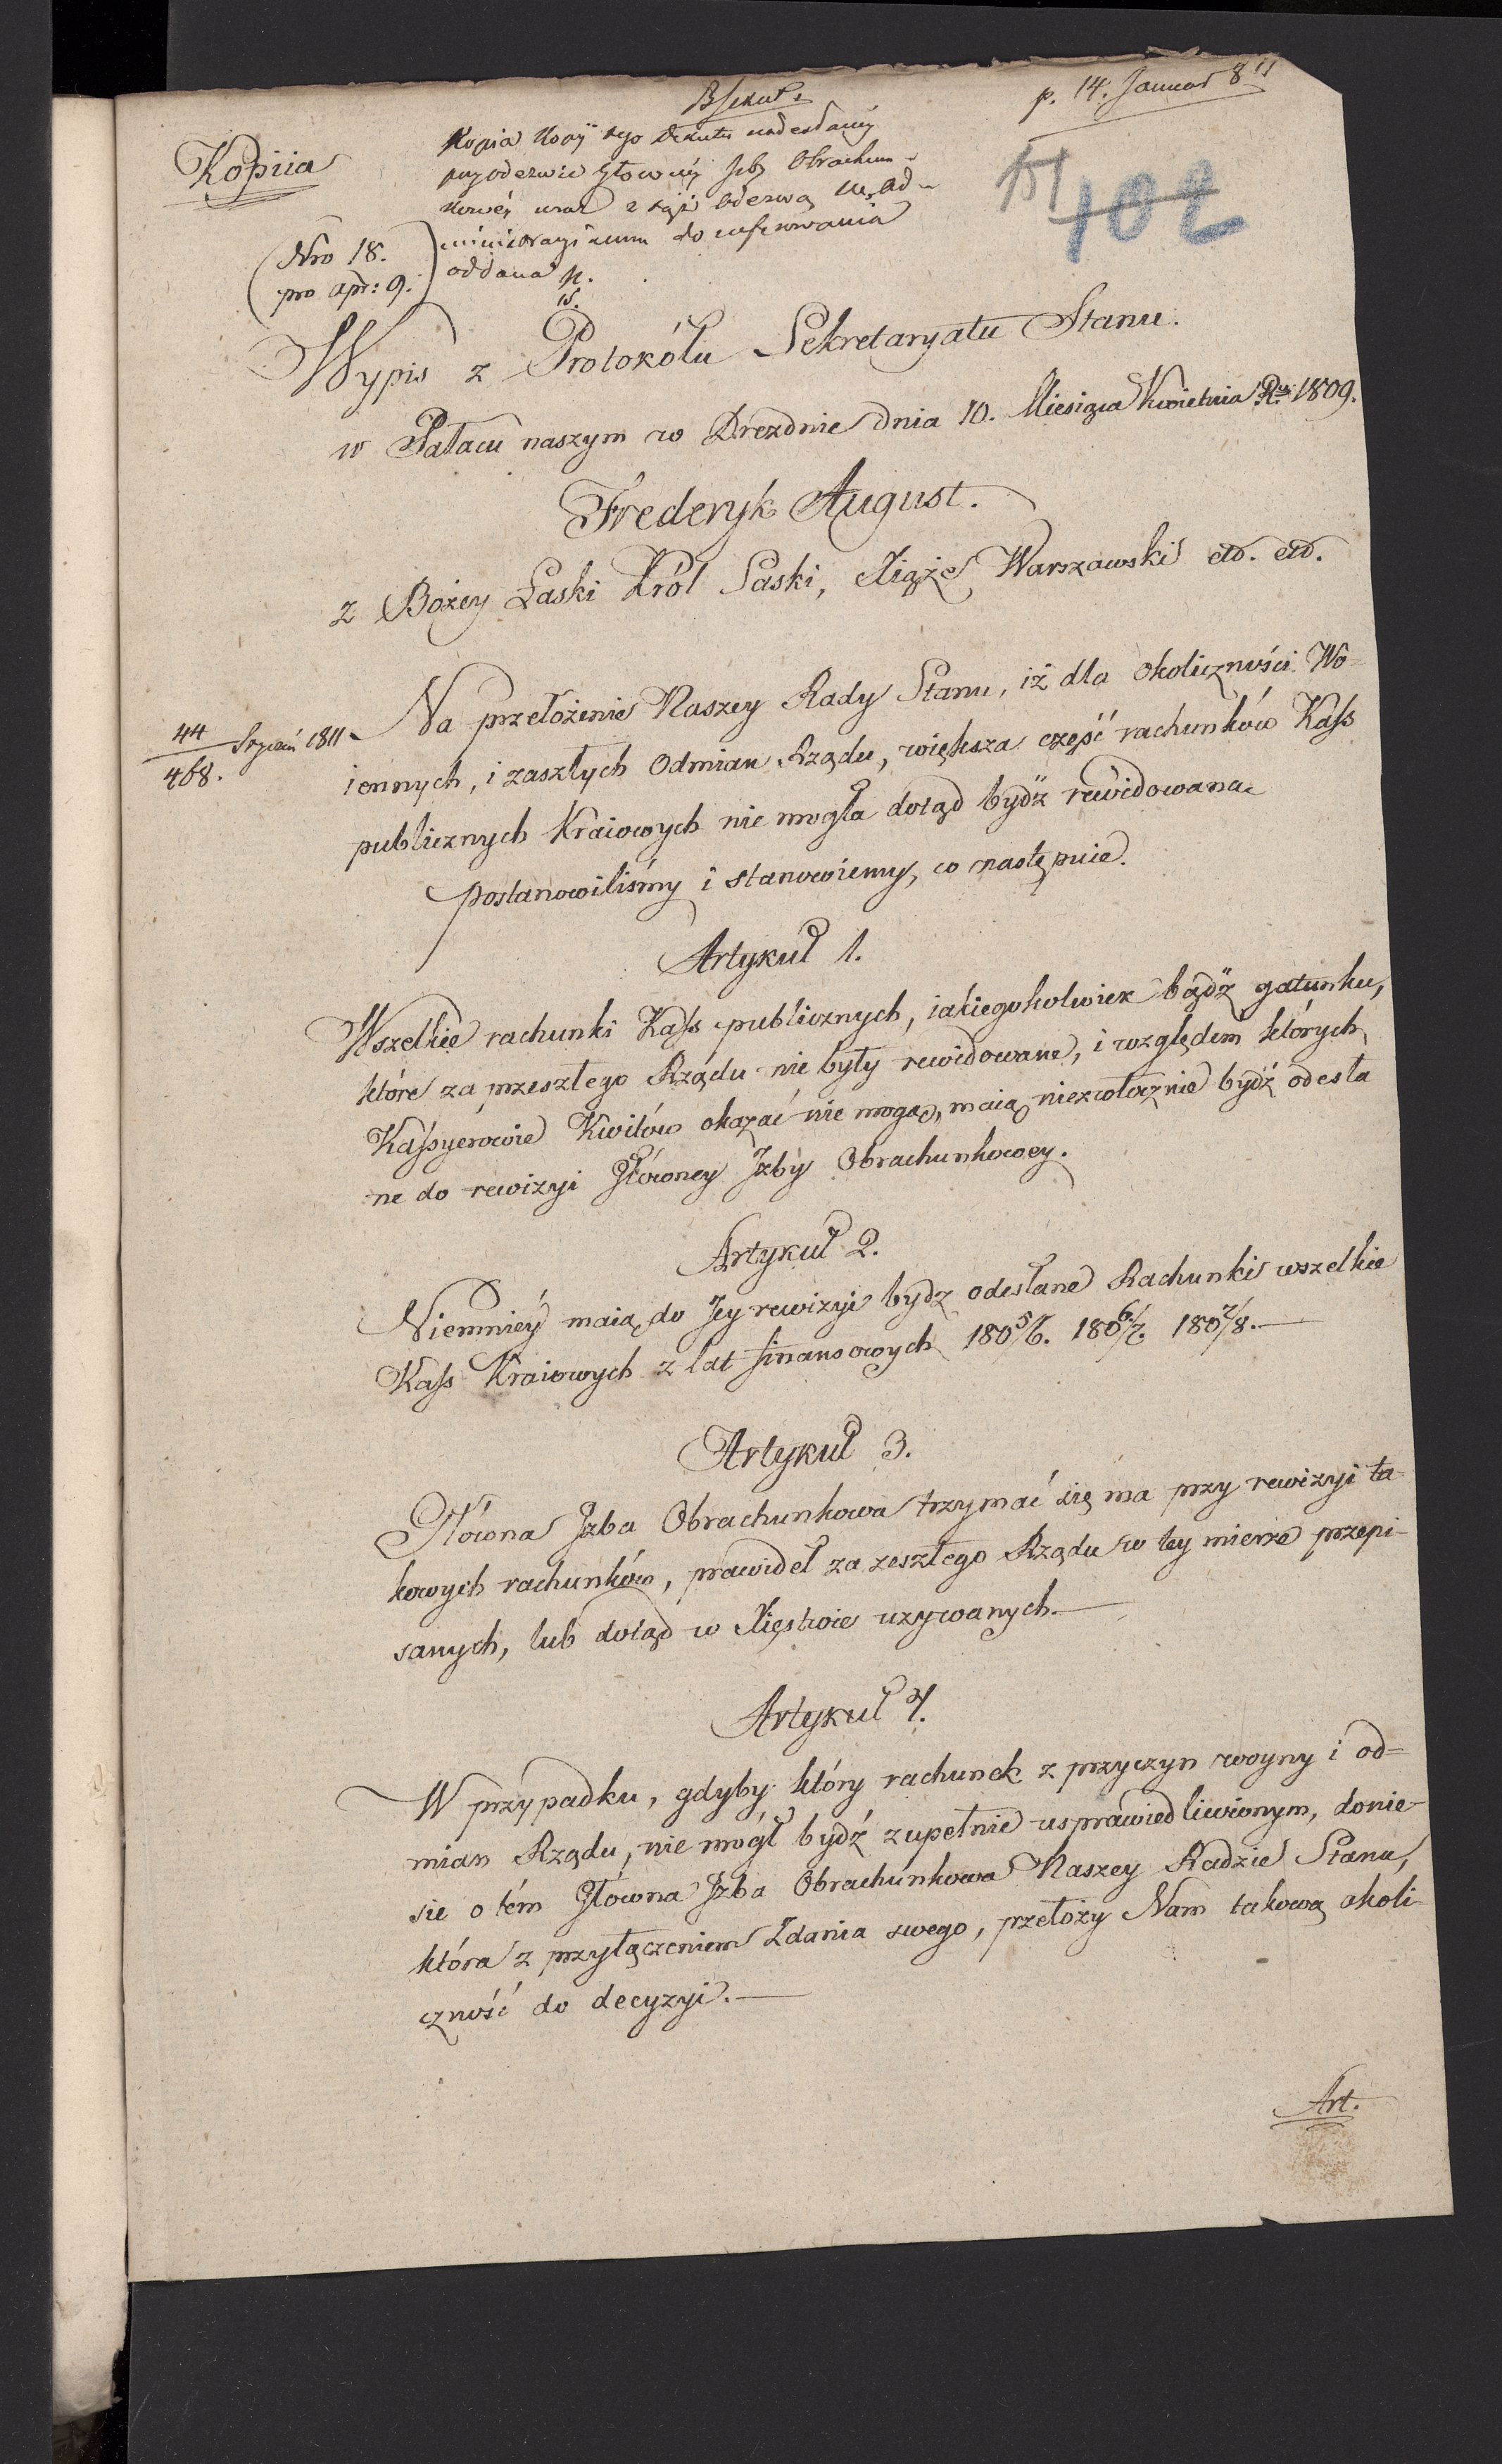 p. 14. Januar 811
Kopiia
Kopia Kopij tego Dekretu nadesłanéy
przy odezwie Głownéy Izby Obrachun-
kowéy wraz z tąż Odezwą
do
oddana
(Nro 18.
pro apr: 9.)
151 102
Wypis z Protokółu Sekretaryatu Stanu.
w Pałacu naszym w Dreznie dnia 10. Miesiąca Kwietnia Rku 1809.
Frederyk August.
z Bożey Łaski Król Saski, Xiąże Warszawski etc. etc.
44 Styczeń 1811
468.
Na przełożenie Naszey Rady Stanu, iż dla okoliczności Wo-
iennych, i zaszłych Odmian Rządu, większa część rachunków Kass
publicznych Kraiowych nie mogła dotąd bydź rewidowana
postanowiliśmy i stanowiemy, co następuie.
Artykuł 1.
Wszelkie rachunki Kass publicznych, iakiegokolwiek bądź gatunku,
które za przeszłego Rządu nie były rewidowane, i względem których
Kassyerowie Kwitów okazać nie mogą, maią niezwłocznie bydź odesła
ne do rewizyi Główney Izby Obrachunkowey.
Artykuł 2.
Niemniéy maią do Jey rewizyi bydz odesłane Rachunki wszelkie
Kass Kraiowych z lat finansowych 1805/6. 1806/7. 1807/8.—
Artykuł 3.
Główna Izba Obrachunkowa trzymać się ma przy rewizyi ta-
kowych rachunków, prawideł za zeszłego Rządu w tey mierze przepi-
sanych, lub dotąd w Xięstwie uzywanych.—
Artykuł 4.
W przypadku, gdyby który rachunek z przyczyn woyny i od=
mian Rządu, nie mógł bydź zupełnie usprawiedliwionym, donie-
sie o tém Główna Izba Obrachunkowa Naszey Radzie Stanu,
która z przyłączeniem Zdania swego, przełoży Nam takową okoli-
czność do decyzyi.—
Art.